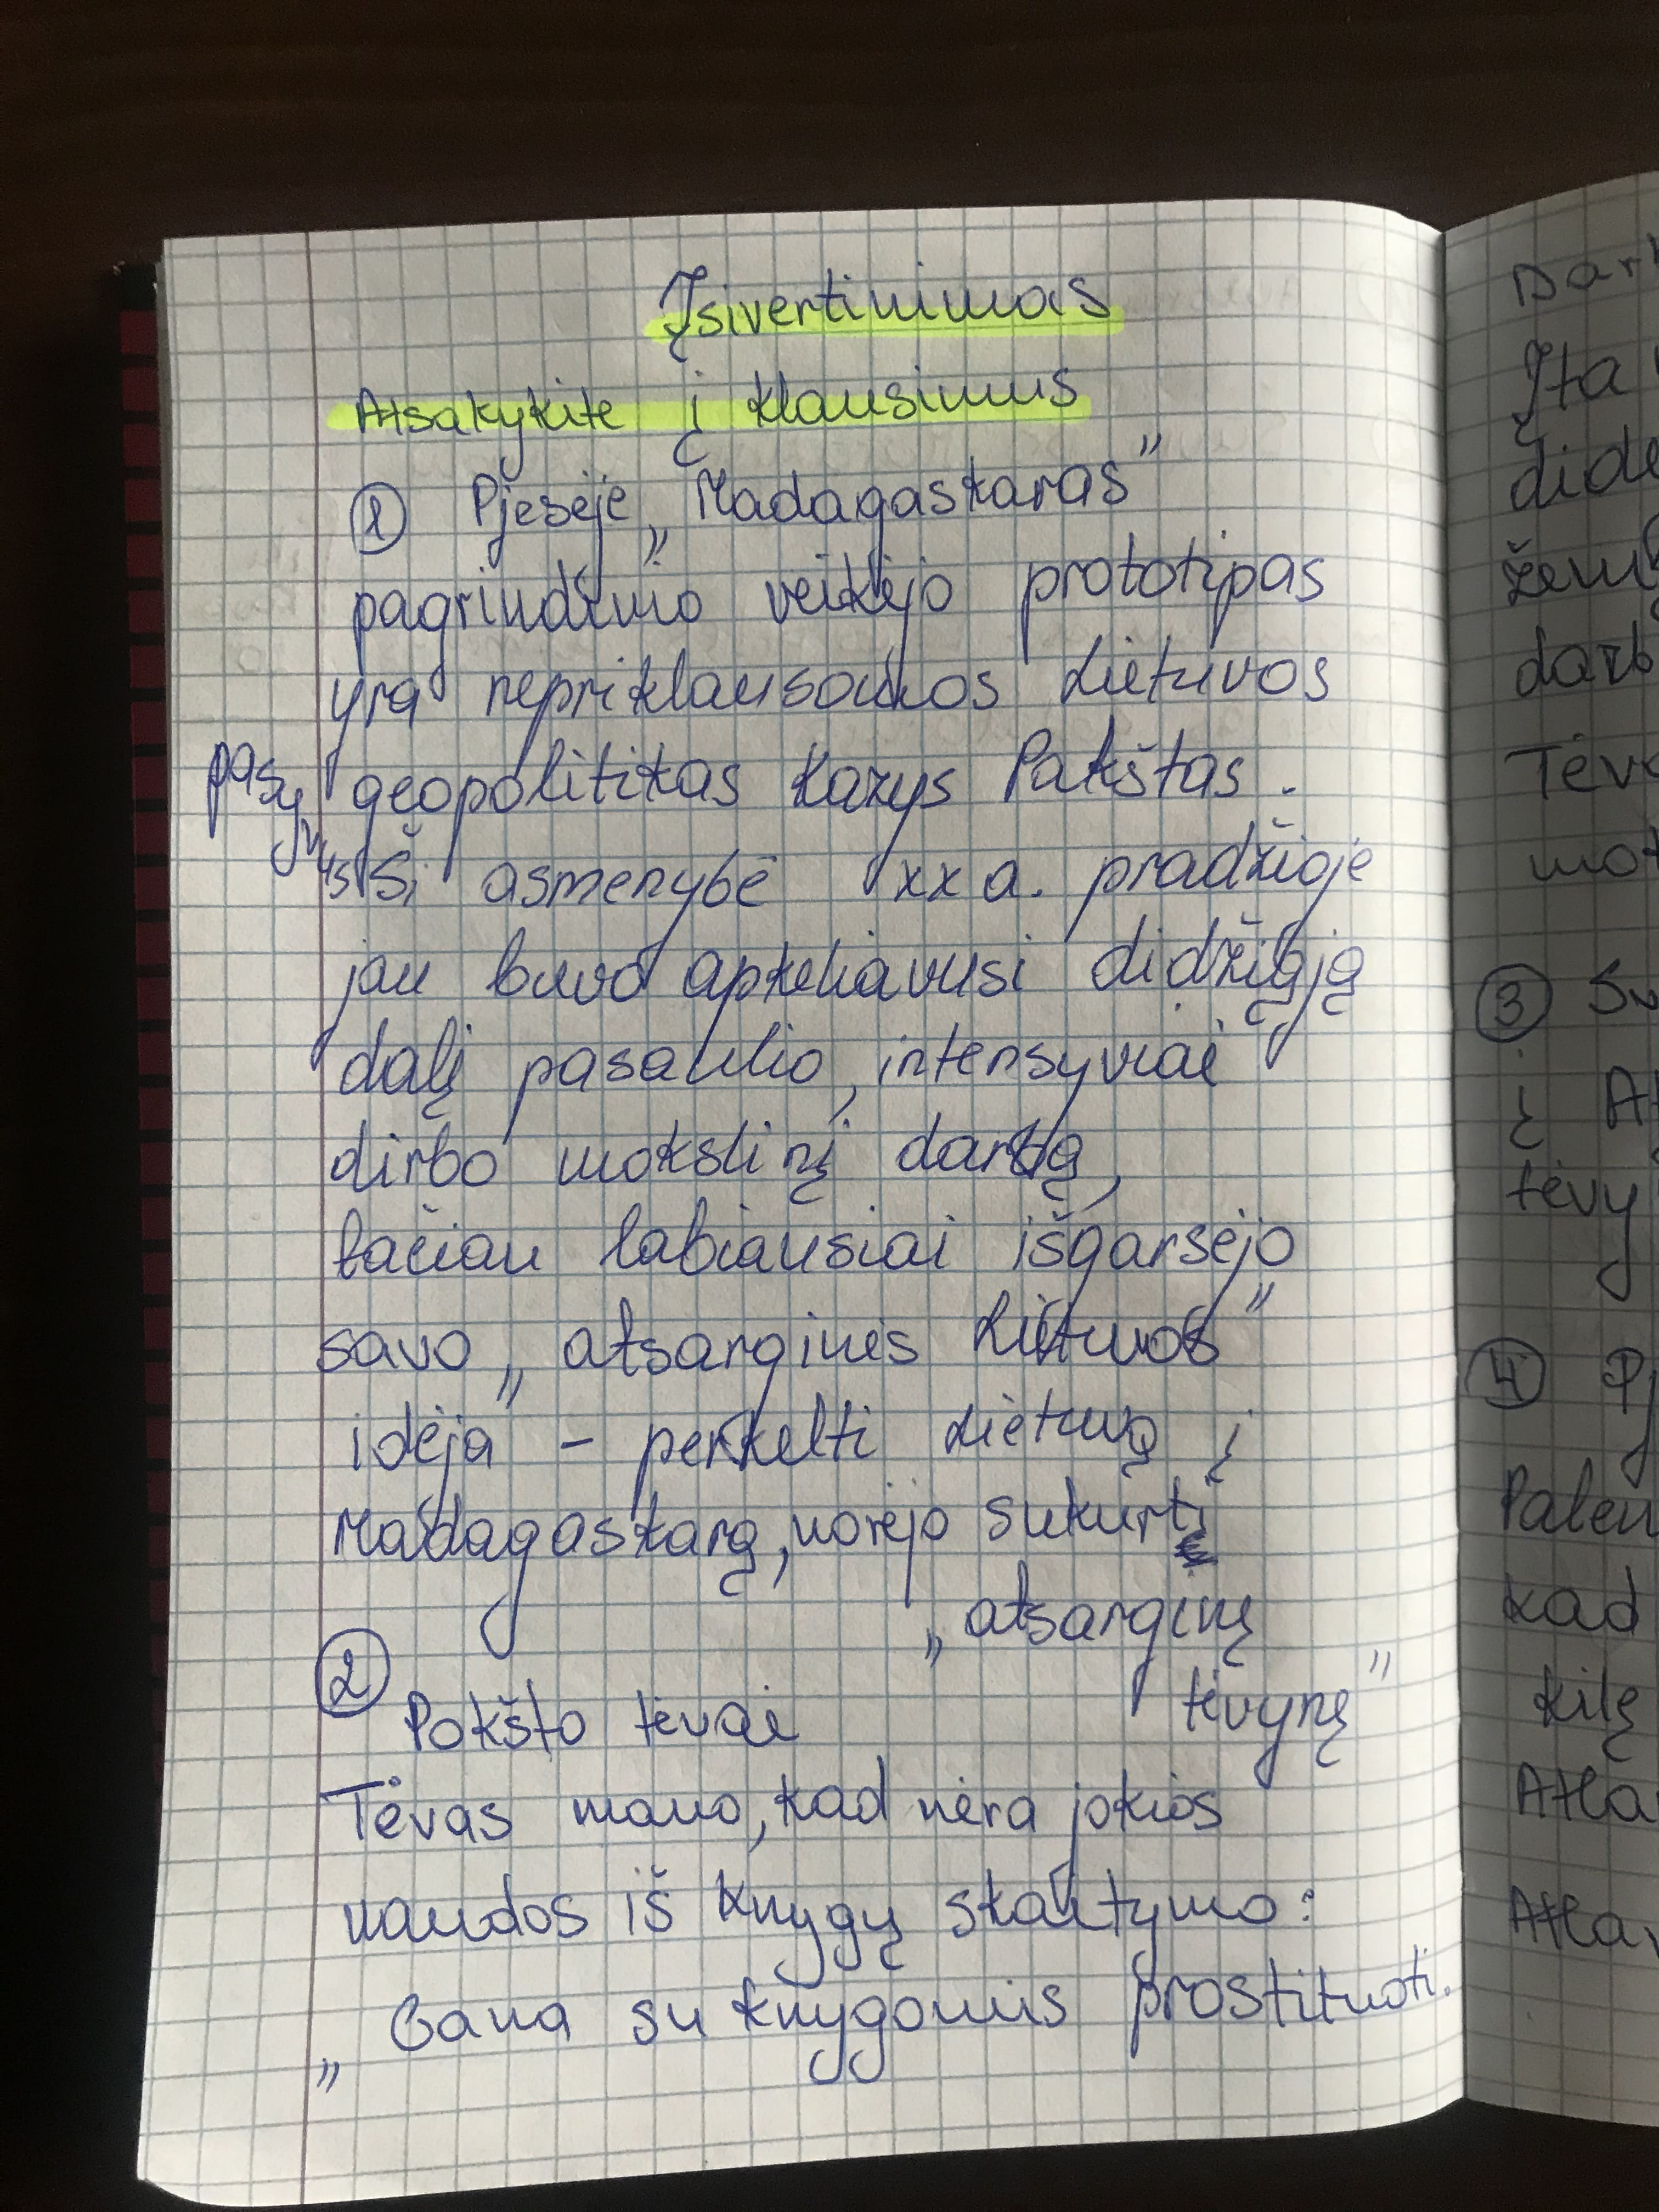 Įsivertinimas
Atsakykite į klausimus
① Pjesėje „Madagaskaras"
pagrindinio veikėjo prototipas
yra nepriklausomos Lietuvos
geopolitikas Kazys Pakštas.
Ši asmenybė XX a. pradžioje
jau buvo apkeliavusi didžiąją
dalį pasaulio, intensyviai
dirbo mokslinį darbą,
tačiau labiausiai išgarsėjo
savo „atsarginės Lietuvos"
idėja - perkelti Lietuvą į
Madagaskarą, norėjo sukurti
„atsarginę
tėvynę"
② Pokšto tėvai
Tėvas mano, kad nėra jokios
naudos iš knygų skaitymo:
„Gana su knygomis prostituoti.
Įta
③
į
tėvy
④
kad
kilę